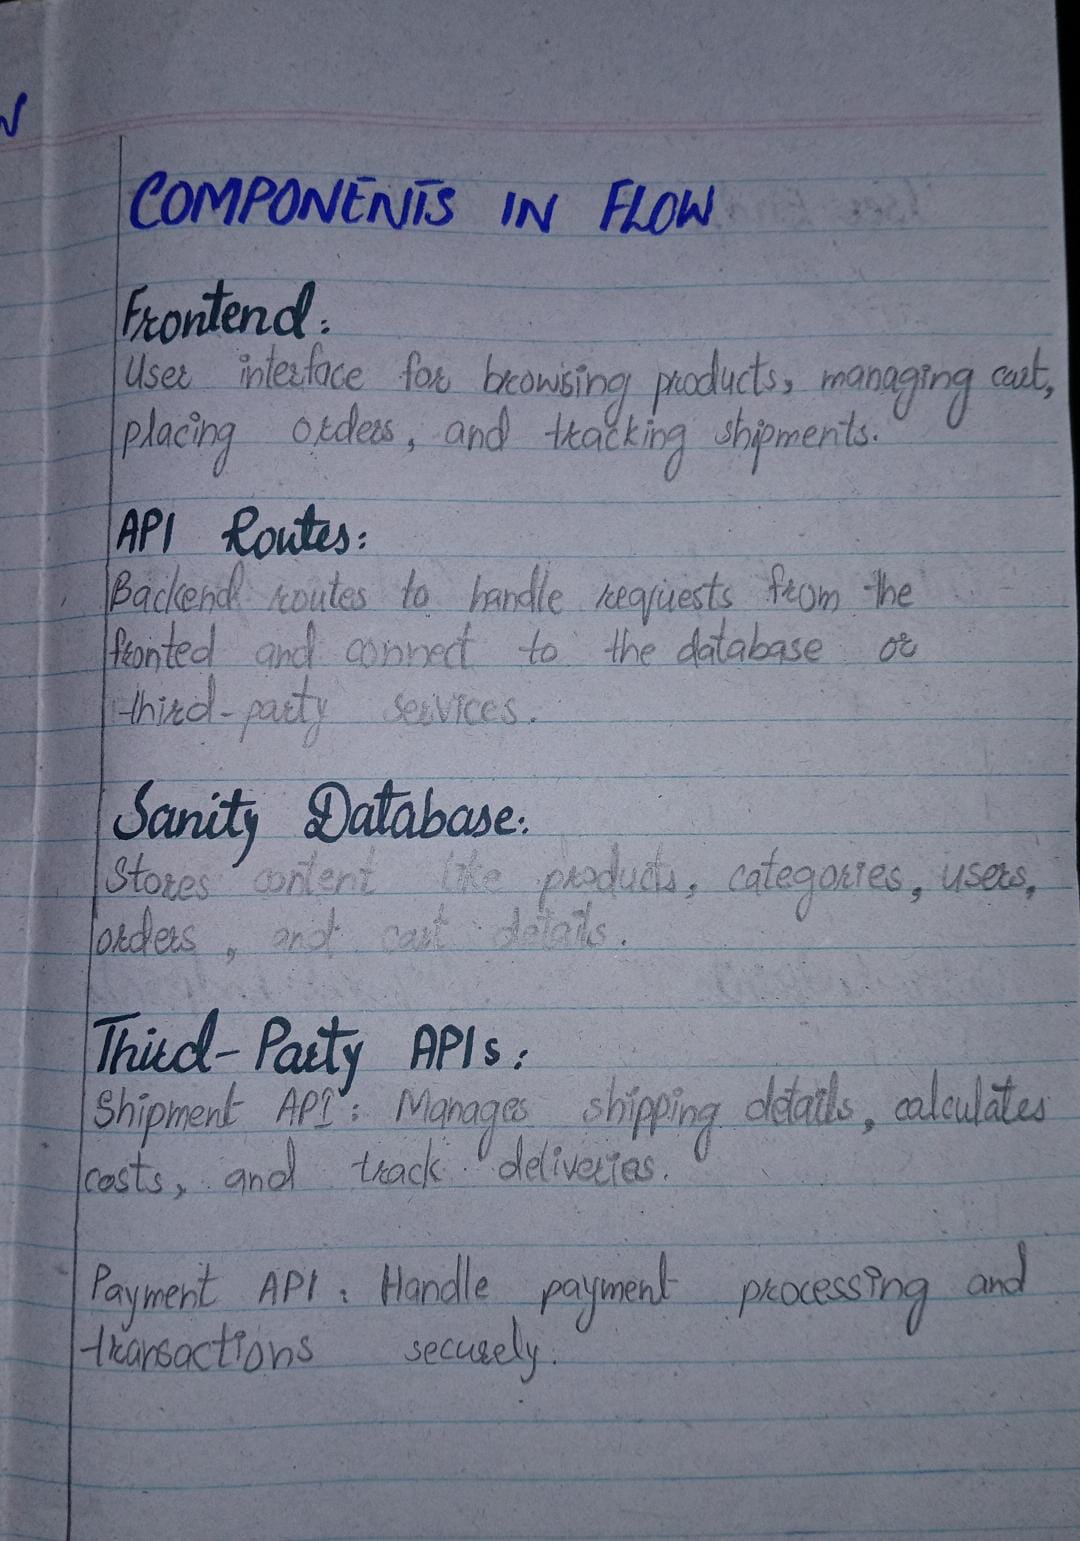 COMPONENTS IN FLOW
Frontend:
User interface for browsing products, managing cart,
placing orders, and tracking shipments.
API Routes:
Backend routes to handle requests from the
fronted and connect to the database or
third-party services.
Sanity Database:
Stores content like products, categories, users,
orders, and cart details.
Third-Party APIs:
Shipment API: Manages shipping details, calculates
costs, and track deliveries.
Payment API: Handle payment processing and
transactions securely.